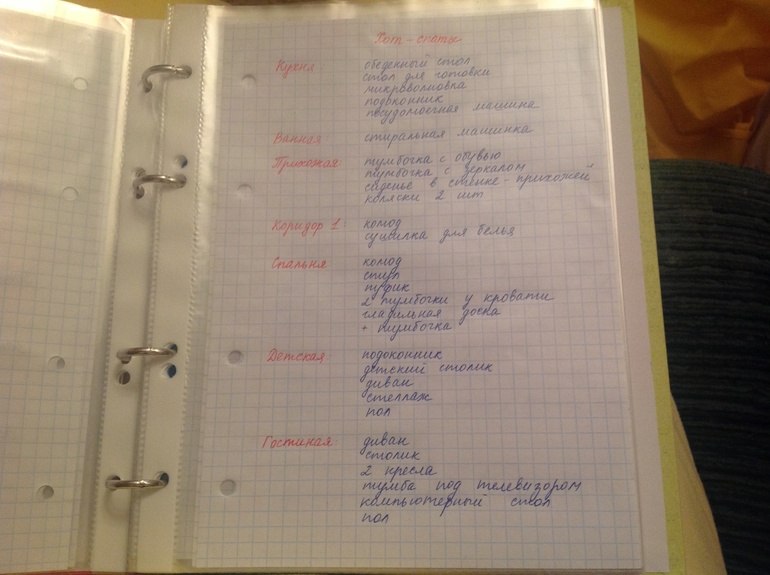 Хот-споты
Кухня обеденный стол
стол для готовки
микроволновка
подоконник
посудомоечная машина
Ванная: стиральная машинка
Прихожая: тумбочка с обувью
тумбочка с зеркалом
сиденье в стенке-прихожей
коляски 2 шт
Коридор 1: комод
сушилка для белья
Спальня комод
стул
пуфик
2 тумбочки у кровати
гладильная доска
+ тумбочка
Детская: подоконник
детский столик
диван
стеллаж
пол
Гостиная: диван
столик
2 кресла
тумба под телевизором
компьютерный стол
пол